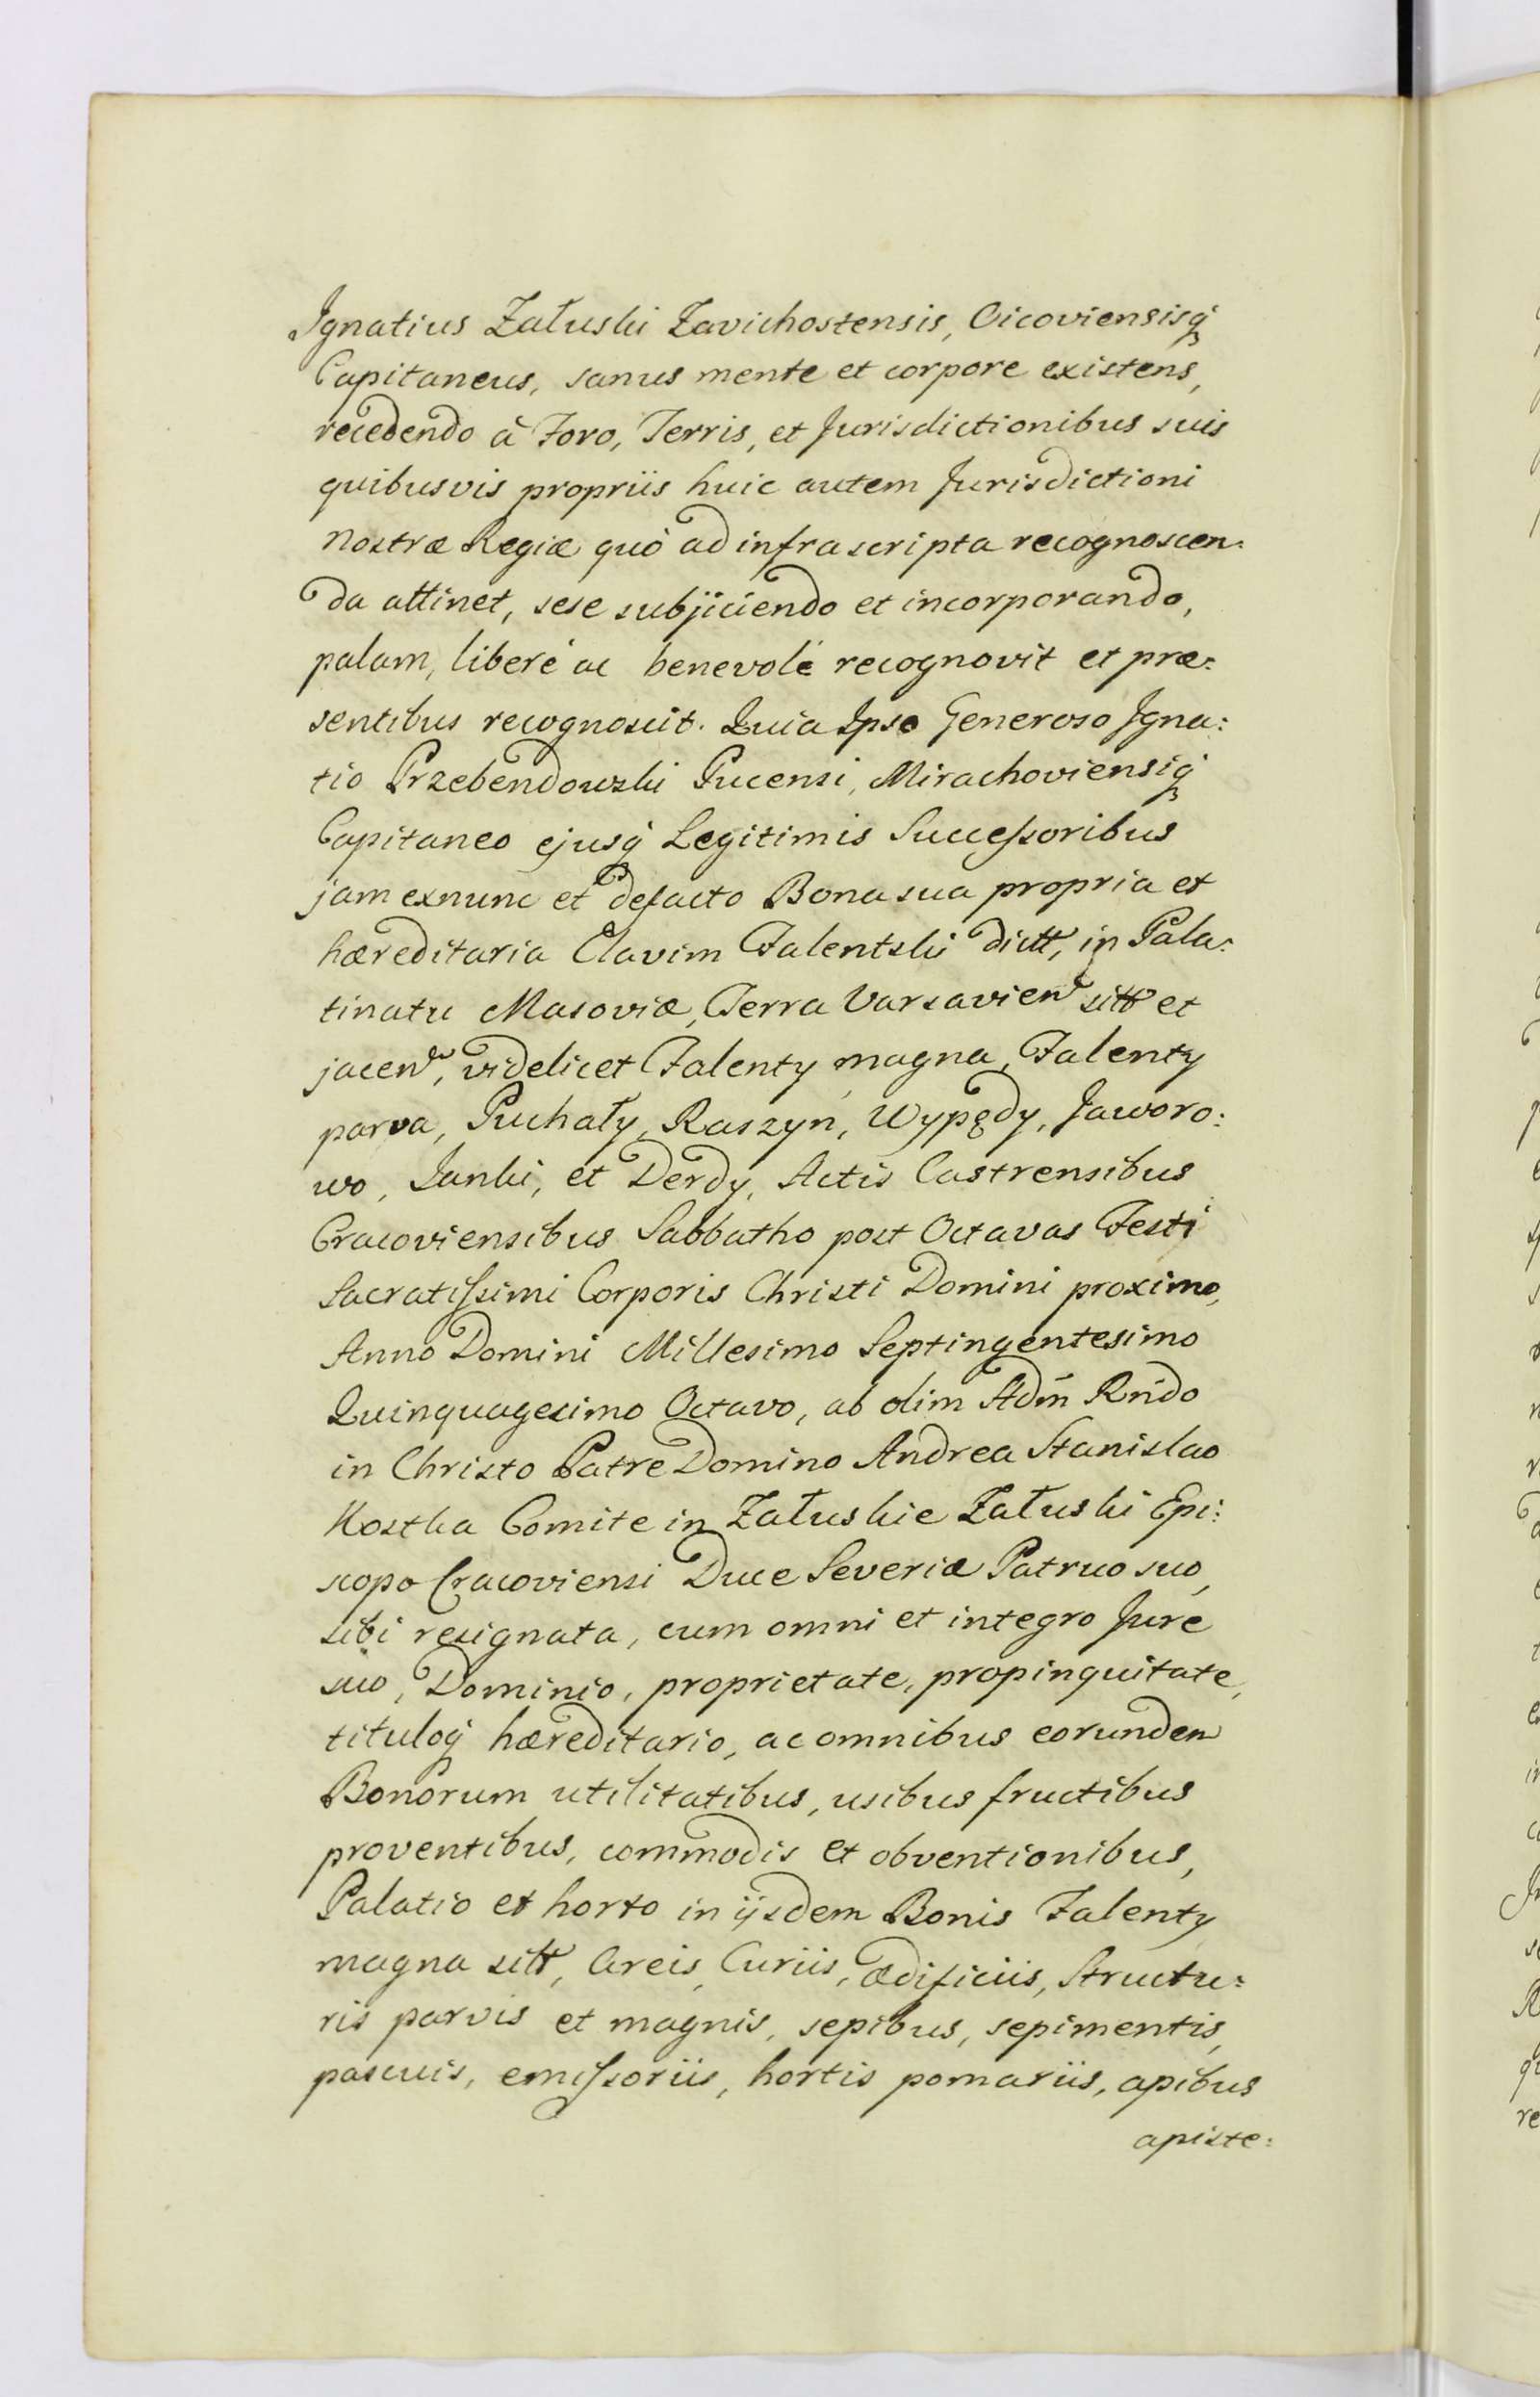 Ignatius Załuski Zavichostensis, Oicoviensisq́
Capitaneus, sanus mente et corpore existens,
recedendo à Foro, Terris, et Jurisdictionibus suis
quibusvis propriis huic autem Jurisdictioni
Nostræ Regiæ quò ad infra scripta recognoscen:
da attinet, sese subjiciendo et incorporando,
palam, liberè ac benevolè recognovit et præ:
sentibus recognoscit. Quia Ipse Generoso Igna:
tio Przebendowski Pucensi, Mirachoviensiq́
Capitaneo ejusq́ Legitimis Successoribus
jam exnunc et defacto Bona sua propria et
hæreditaria Clavim Falentski dictt, in Pala:
tinatu Masoviæ, Terra Varsavien sitt et
jacen, videlicet Falenty magna, Falenty
parva, Puchały, Raszyń, Wypędy, Jaworo:
wo, Janki, et Derdy, Actis Castrensibus
Cracoviensibus Sabbatho post Octavas Festi
Sacratissimi Corporis Christi Domini proximo,
Anno Domini Millesimo Septingentesimo
Quinquagesimo Octavo, ab olim Adm̃ Rńdo
in Christo Patre Domino Andrea Stanislao
Kostka Comite in Załuskie Załuski Epi:
scopo Cracoviensi Duce Severiæ Patruo suo,
sibi resignata, cum omni et integro Jure
suo, Dominio, proprietate, propinquitate,
tituloq́ hæreditario, ac omnibus eorunden
Bonorum utilitatibus, usibus fructibus
proventibus, commodis et obventionibus,
Palatio et horto in iisdem Bonis Falenty
magna sitt, Areis, Curiis, ædificiis, Structu:
ris parvis et magnis, sepibus, sepimentis,
pascuis, emissoriis, hortis pomariis, apibus
apiste: